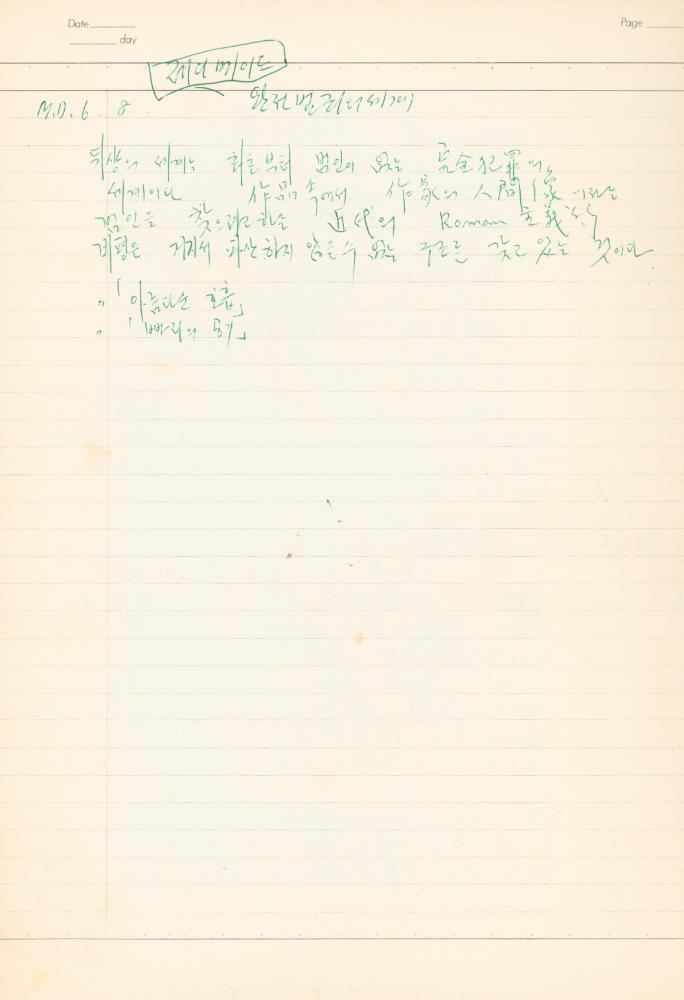 Date
day
Page
레디 메이드
완전 범죄의 세계
M.D. 6. 8
뒤샹의 세계는 최초부터 범인이 없는 完全犯罪의
세계이다 作品 속에서 作家의 人間像 이라는
범인을 찾으려고 하는 近代의 Roman 主義的
비평은 거기서 파산하지 않을 수 없는 구조를 갖고 있는 것이다
〃 「아름다운 호흡」
〃 「빠리의 공기」